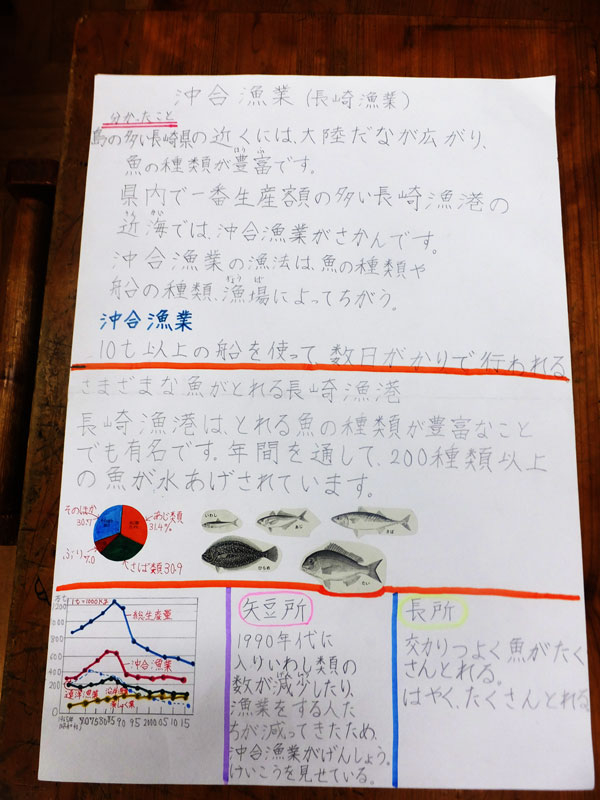 沖合漁業(長崎漁業)
分かったこと
島の多い長崎県の近くには、大陸だなが広がり、
魚の種類が豊富です。
県内で一番生産額の多い長崎漁港の
近海では、沖合漁業がさかんです。
沖合漁業の漁法は、魚の種類や
船の種類、漁場によってちがう。
沖合漁業
10t以上の船を使って、数日がかりで行われる
さまざまな魚がとれる長崎漁港
長崎漁港は、とれる魚の種類が豊富なこと
でも有名です。年間を通して、200種類以上
の魚が水あげされています。
そのほか
30.7
あじ類
31.4%
ぶり 7.0
さば類 30.9
いわし
あじ
さば
ひらめ
たい
万t
1t=1000kg
1200
1000
800
600
400
200
0
総生産量
沖合漁業
遠洋漁業
沿岸漁業
80 75 80 85 90 95 2000 05 10 15
短所
1990年代に
入りいわし類の
数が減少したり、
漁業をする人た
ちが減ってきたため、
沖合漁業がげんしょう。
けいこうを見せている。
長所
効りつよく魚がたく
さんとれる。
はやく、たくさんとれる